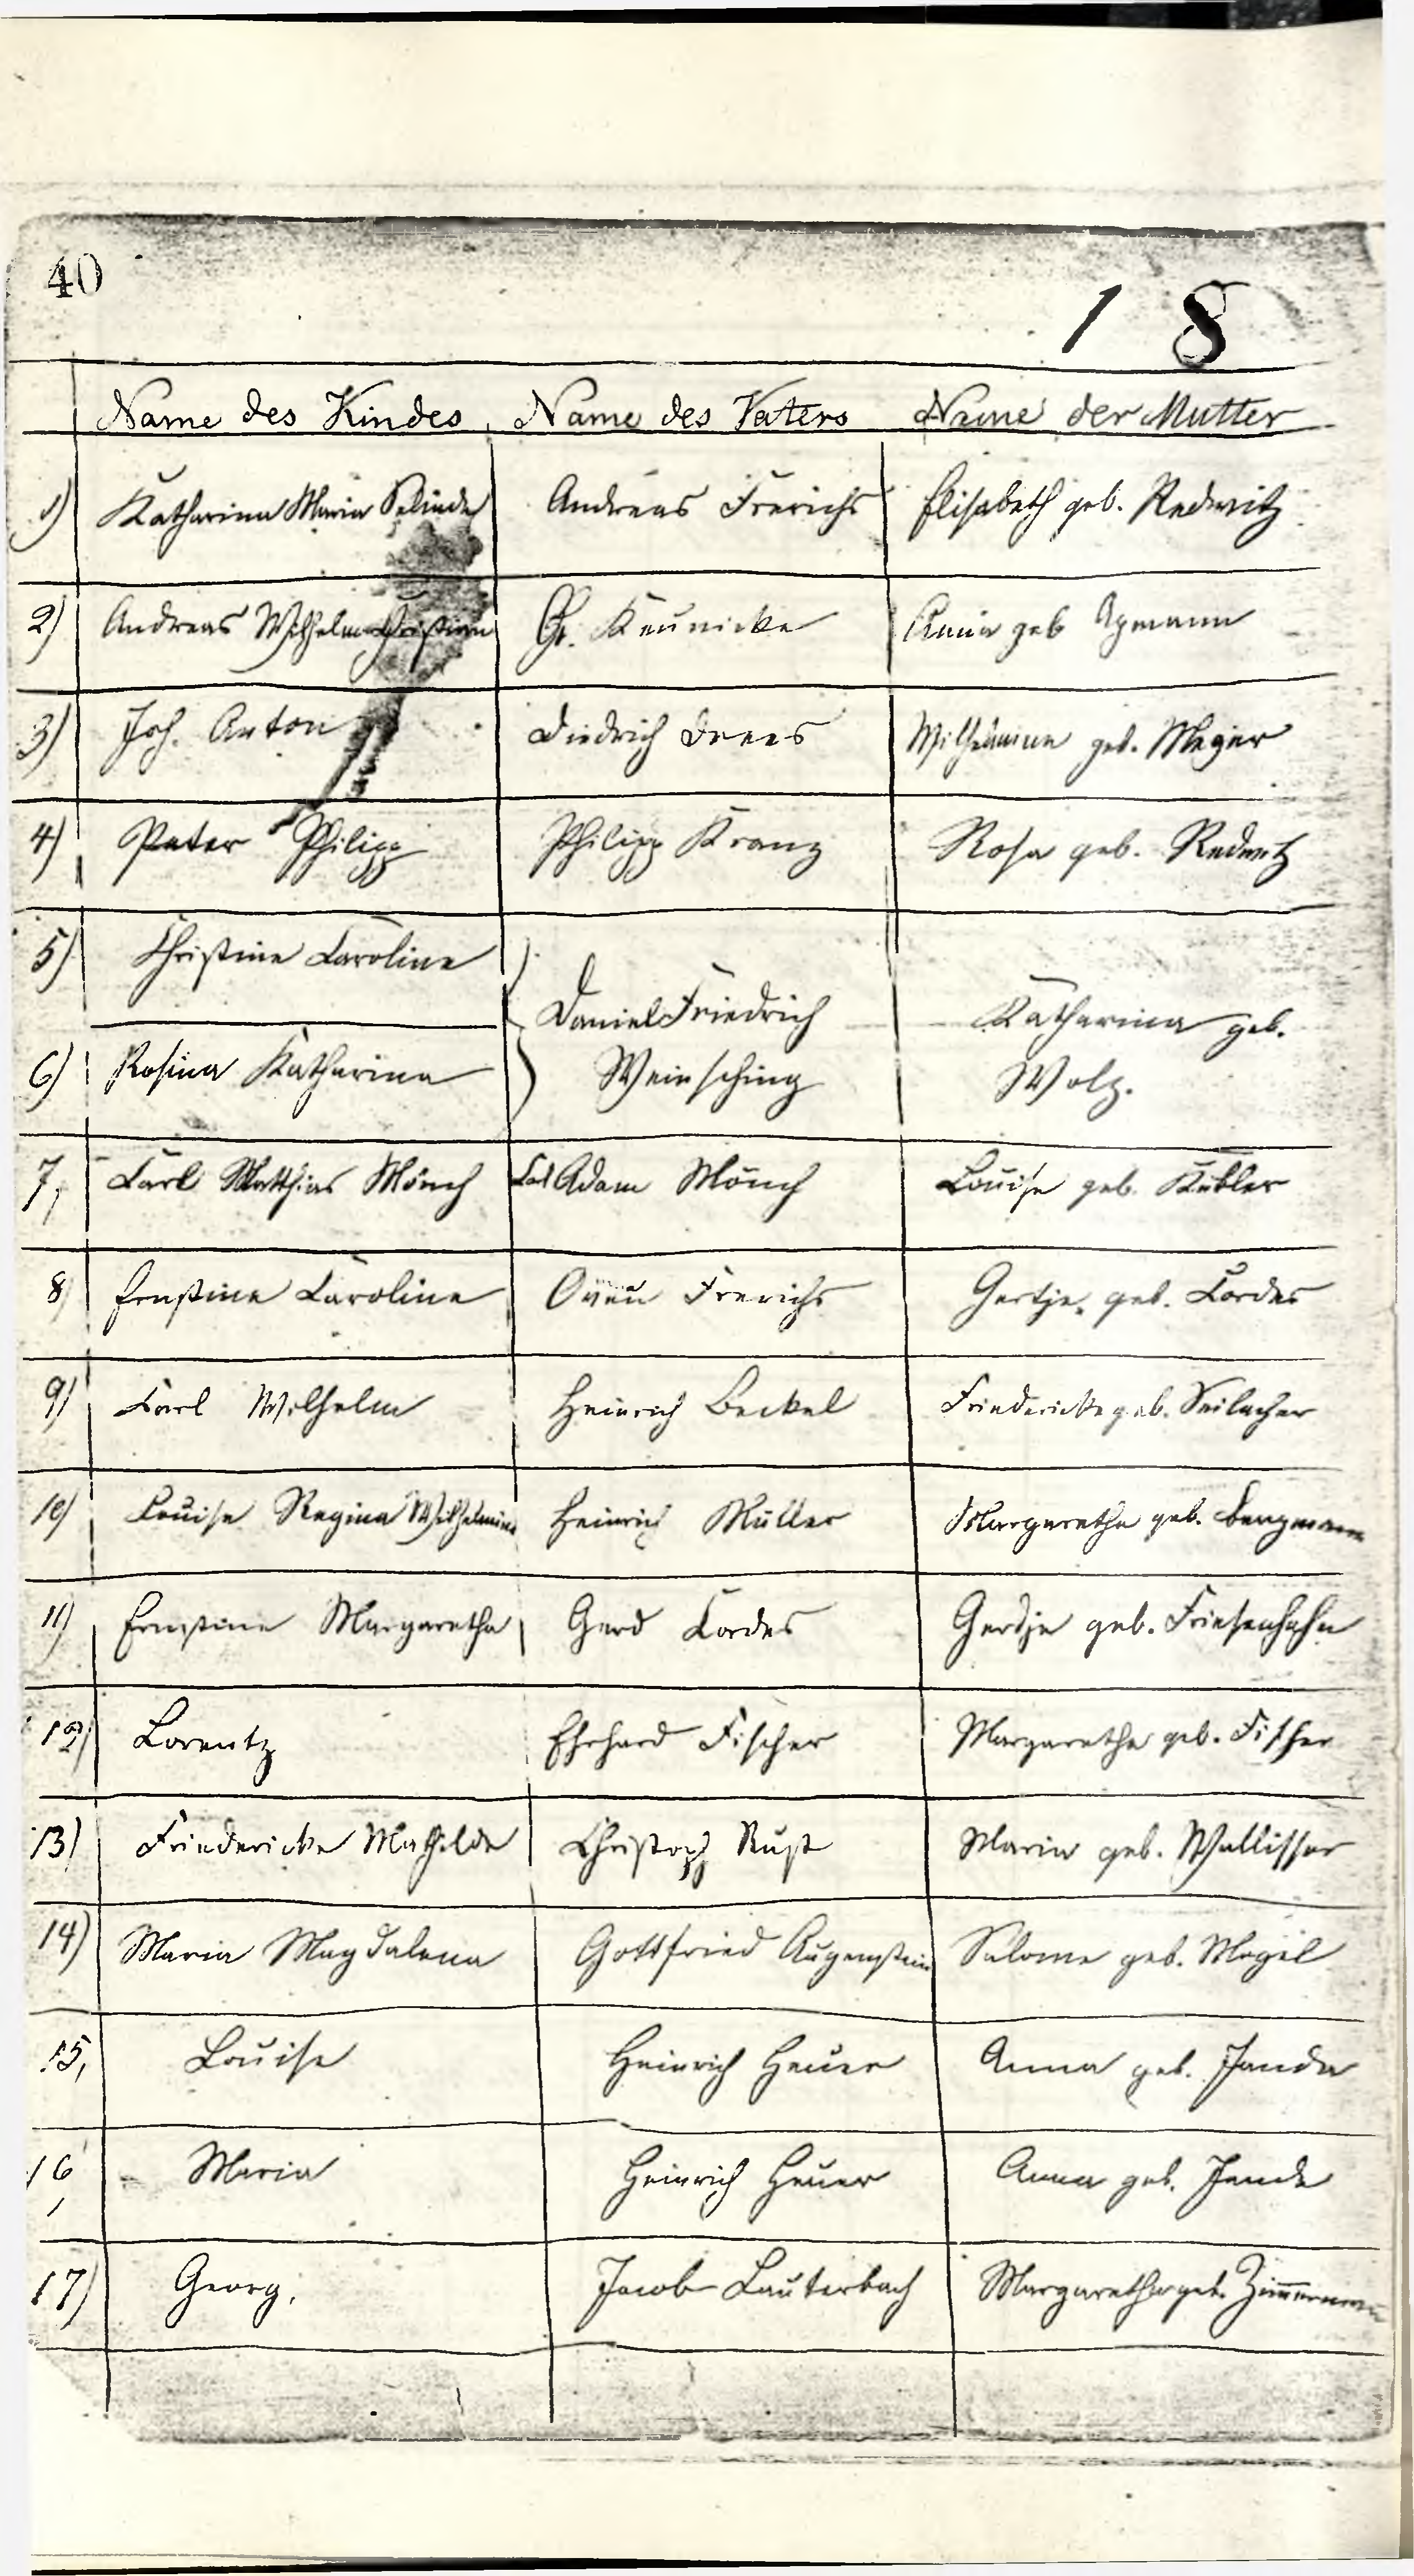 40
18
Name des Kindes Name des Vaters Name der Mutter
1) Katharina Maria Andreas Frerichs Elisabeth geb. Redwitz
2) Andreas Wilhelm Christian Keunicke Anna geb
3) Joh. Anton Diedrich Drees Wilhelmine geb. Meyer
4) Peter Philipp Philipp Kranz Rosa geb. Redwitz
5) Christine Caroline
Daniel Friedrich Katharina geb.
6) Rosina Katharina Weinsching Wolz.
7, Carl Matthias Mönch Adam Mönch Louise geb. Kübler
8) Ernstine Caroline Frerichs Gertje, geb. Cordes
9) Carl Wilhelm Heinrich Beckel Friedericke geb. Seilacher
10) Louise Regina Wilhelmine Heinrich Müller Margaretha geb. Bergmann
11) Ernstine Margaretha Gerd Cordes Gerdje geb. Friesenhahn
12) Lorentz Ehrhard Fischer Margaretha geb. Fischer
13) Friedericke Mathilde Christoph Rust Maria geb. Wallisser
14) Maria Magdalena Gottfried Augenstein Salome geb.
15, Louise Heinrich Heuer Anna geb. Janda
16, Maria Heinrich Heuer Anna geb. Janda
17) Georg, Jacob Lauterbach Margaretha geb. Zimmermann